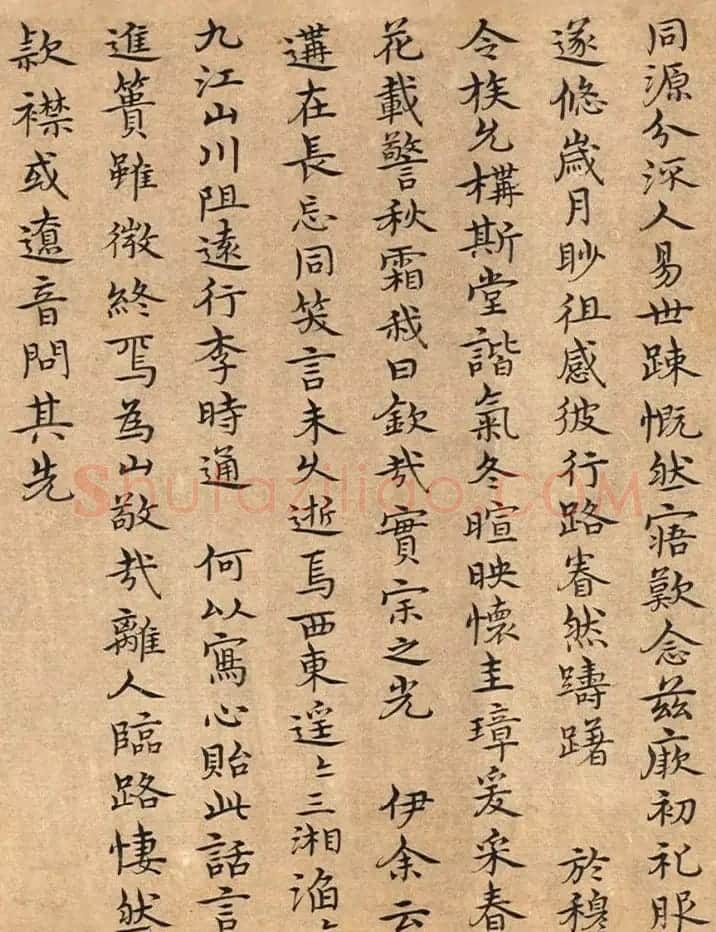 同源分派人易世踈慨然寤歎念茲厥初礼服
遂悠歲月眇徂感彼行路眷然躊躇 於穆
令族允構斯堂諧氣冬暄映懷圭璋爰采春
花載警秋霜我曰欽哉實宗之光 伊余云
遘在長忘同笑言未久逝焉西東遥〻三湘滔〻
九江山川阻遠行李時通 何以寫心貽此話言
進簣雖微終焉為山敬哉離人臨路悽然
款襟或遼音問其先
Shufaziliao.COM